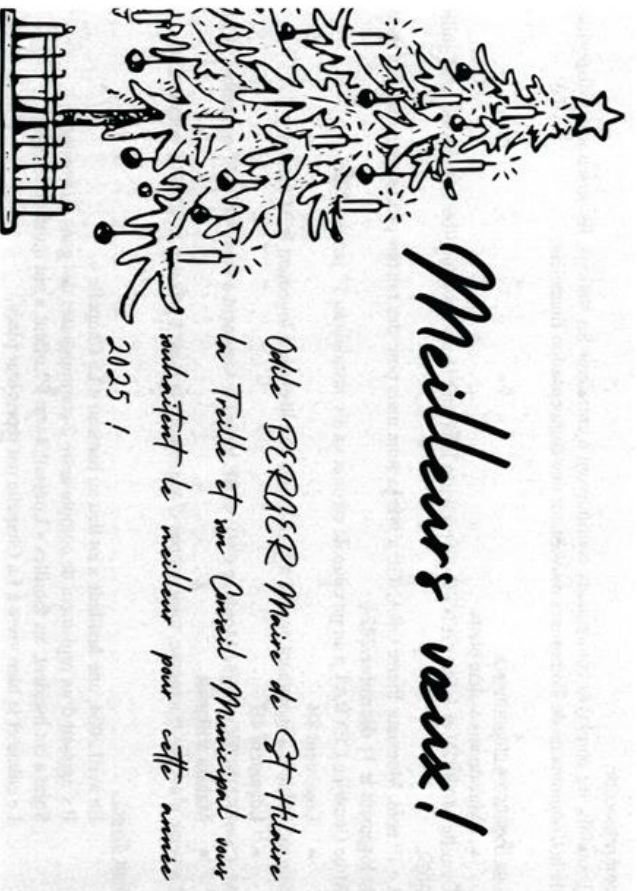 Meilleurs vœux !
Odile BERGER Maire de St Hilaire
la Treille et son Conseil Municipal vous
souhaitent le meilleur pour cette année
2025 !